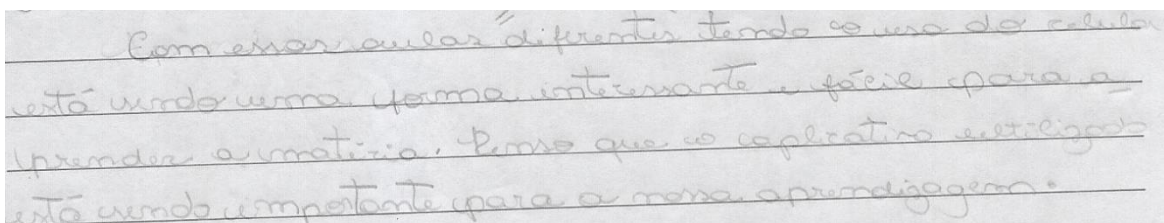 Com essas aulas diferentes tendo o uso do celular
está sendo uma forma interessante e fácil para a
prender a matéria. Penso que o aplicativo utilizado
está sendo importante para a nossa aprendizagem.